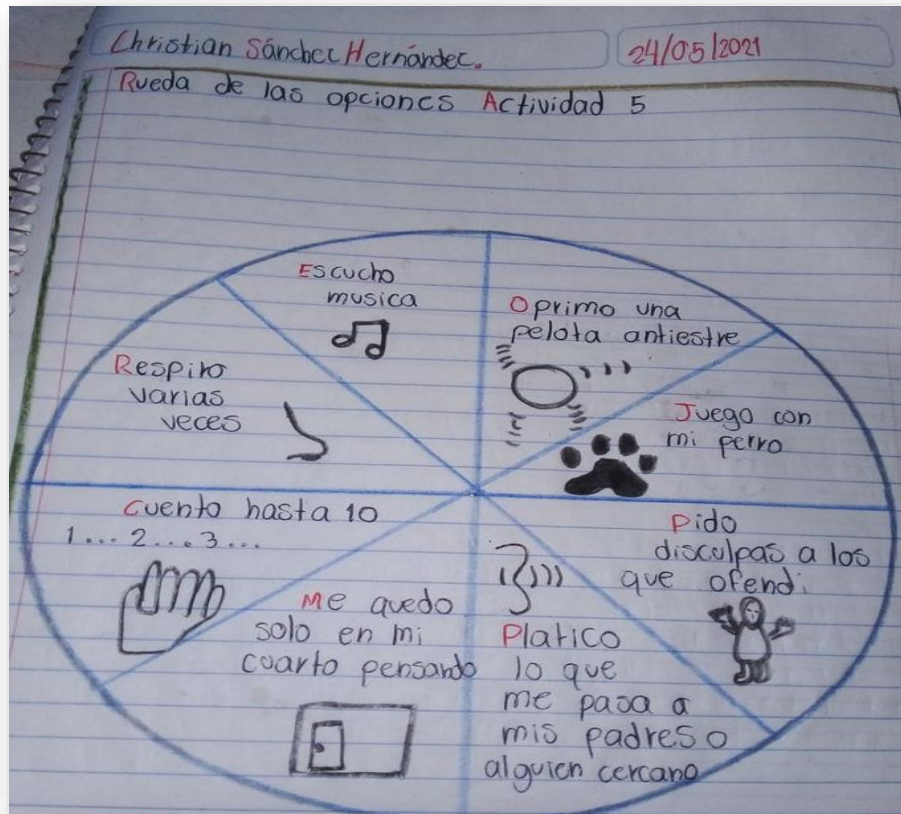 Christian Sánchez Hernández.
24/05/2021
Rueda de las opciones Actividad 5
Escucho
musica
Oprimo una
pelota antiestre
Juego con
mi perro
Pido
disculpas a los
que ofendi.
Platico
lo que
me pasa a
mis padres o
alguien cercano
Me quedo
solo en mi
cuarto pensando
Cuento hasta 10
1... 2... 3...
Respiro
varias
veces